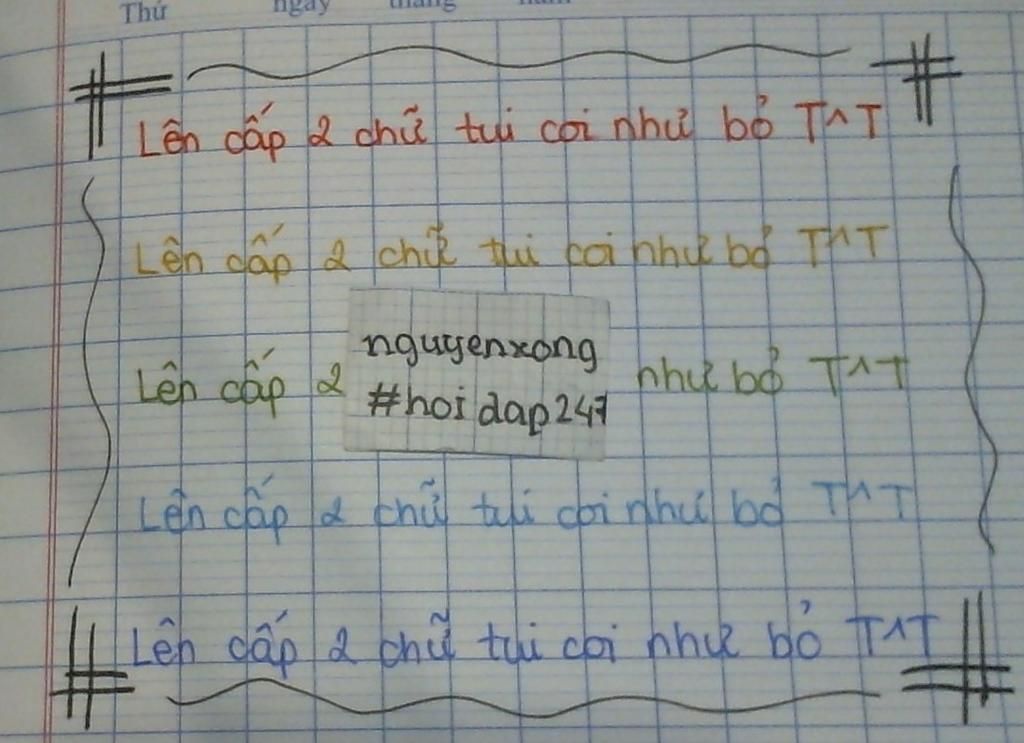 Thứ ngày tháng năm
Lên cấp 2 chữ tui coi như bỏ T^T
Lên cấp 2 chữ tui coi như bỏ T^T
Lên cấp 2 nguyenxong như bỏ T^T
#hoidap247
Lên cấp 2 chữ tui coi như bỏ T^T
Lên cấp 2 chữ tui coi như bỏ T^T